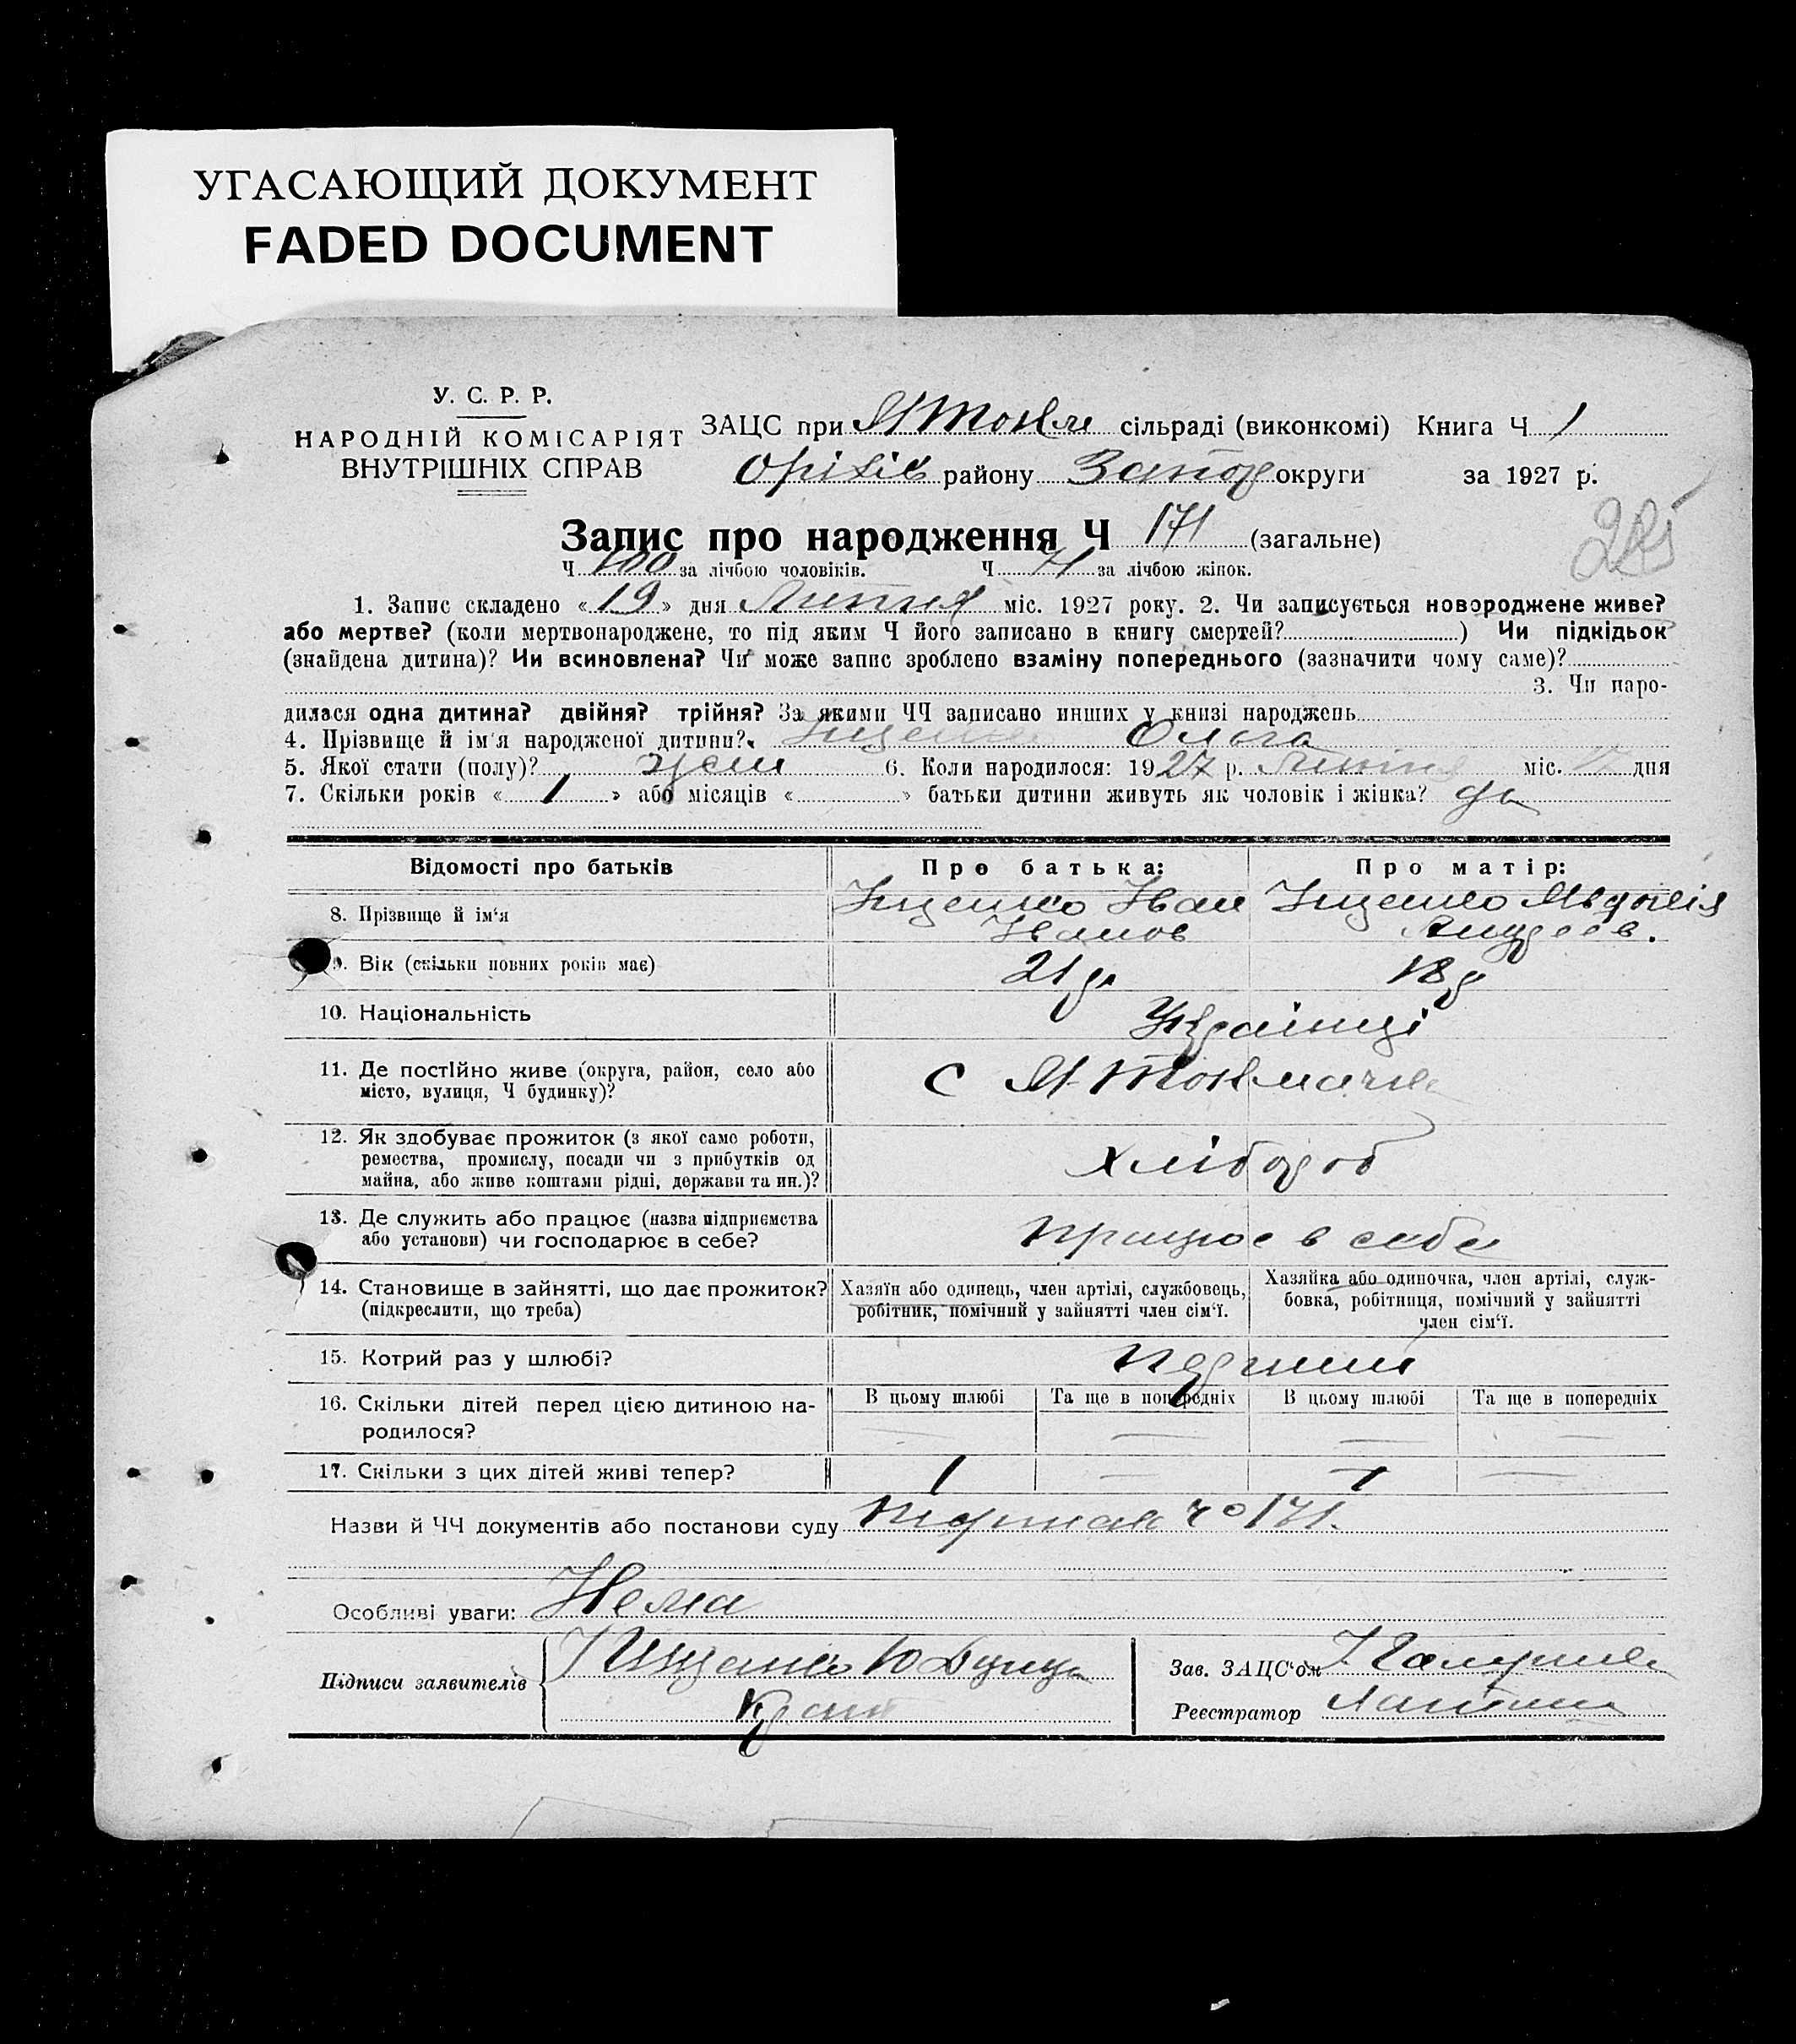 УГАСАЮЩИЙ ДОКУМЕНТ
FADED DOCUMENT
У. С. Р. Р.
НАРОДНІЙ КОМІСАРІЯТ
ВНУТРІШНІХ СПРАВ
ЗАЦС при М Токм сільраді (виконкомі) Книга Ч 1
Оріхів району Запор округи за 1927 р.
Запис про народження Ч 171 (загальне)
Ч 100 за лічбою чоловіків. Ч 71 за лічбою жінок.
1. Запис складено « 19 » дня Липня міс. 1927 року. 2. Чи записується новороджене живе?
або мертве? (коли мертвонароджене, то під яким Ч його записано в книгу смертей? ) Чи підкідьок
(знайдена дитина)? Чи всиновлена? Чи може запис зроблено взаміну попереднього (зазначити чому саме)?
3. Чи наро-
дилася одна дитина? двійня? трійня? За якими ЧЧ записано инших у книзі народжень
4. Прізвище й ім'я народженої дитини? Іщенко Ольга
5. Якої стати (полу)? жен 6. Коли народилося: 1927 р. Липня міс. 17 дня
7. Скільки років « 1 » або місяців « » батьки дитини живуть як чоловік і жінка? да
Відомості про батьків Про батька: Про матір:
8. Прізвище й ім'я Іщенко Іван Іщенко Явдокія
Іванов Андреев.
9. Вік (скільки повних років має) 21 р. 18 р
10. Національність Українці
11. Де постійно живе (округа, район, село або
місто, вулиця, Ч будинку)? С М-Токмачка
12. Як здобуває прожиток (з якої само роботи,
ремества, промислу, посади чи з прибутків од
майна, або живе коштами рідні, держави та ин.)? Хлібороб
13. Де служить або працює (назва підприємства
або установи) чи господарює в себе? працює в себе
14. Становище в зайнятті, що дає прожиток?
(підкреслити, що треба)
Хазяїн або одинець, член артілі, службовець,
робітник, помічний у зайнятті член сім'ї.
Хазяйка або одиночка, член артілі, служ-
бовка, робітниця, помічний у зайнятті
член сім'ї.
15. Котрий раз у шлюбі? перший
16. Скільки дітей перед цією дитиною на-
родилося?
В цьому шлюбі Та ще в попередніх В цьому шлюбі Та ще в попередніх
— — — —
17. Скільки з цих дітей живі тепер? 1 — 1 —
Назви й ЧЧ документів або постанови суду 171.
Особливі уваги: Нема
Підписи заявителів Іщенко
Зав. ЗАЦС'ом
Реєстратор